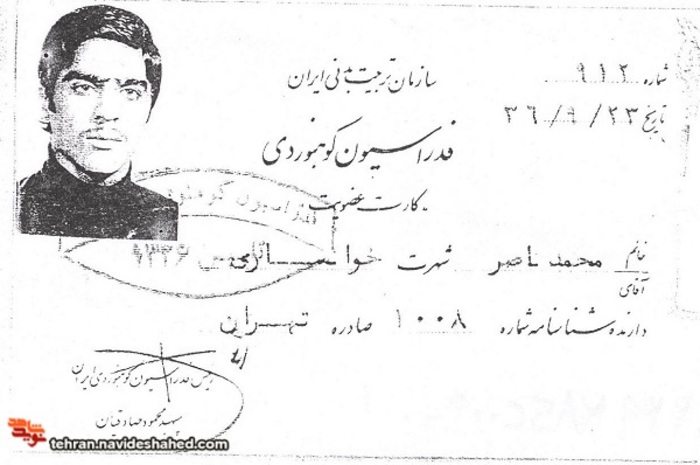 شماره ۹۱۲
تاریخ ۳۶/۹/۲۳
سازمان تربیت بدنی ایران
فدراسیون کوهنوردی
کارت عضویت
خانم
آقای
محمد ناصر شهرت خوانساری
دارنده شناسنامه شماره ۱۰۰۸ صادره تهران
رئیس فدراسیون کوهنوردی ایران
سپهبد محمود صادقیان
فدراسیون کوهنوردی
تأسیس ۱۳۲۶
نوید شاهد
tehran.navideshahed.com